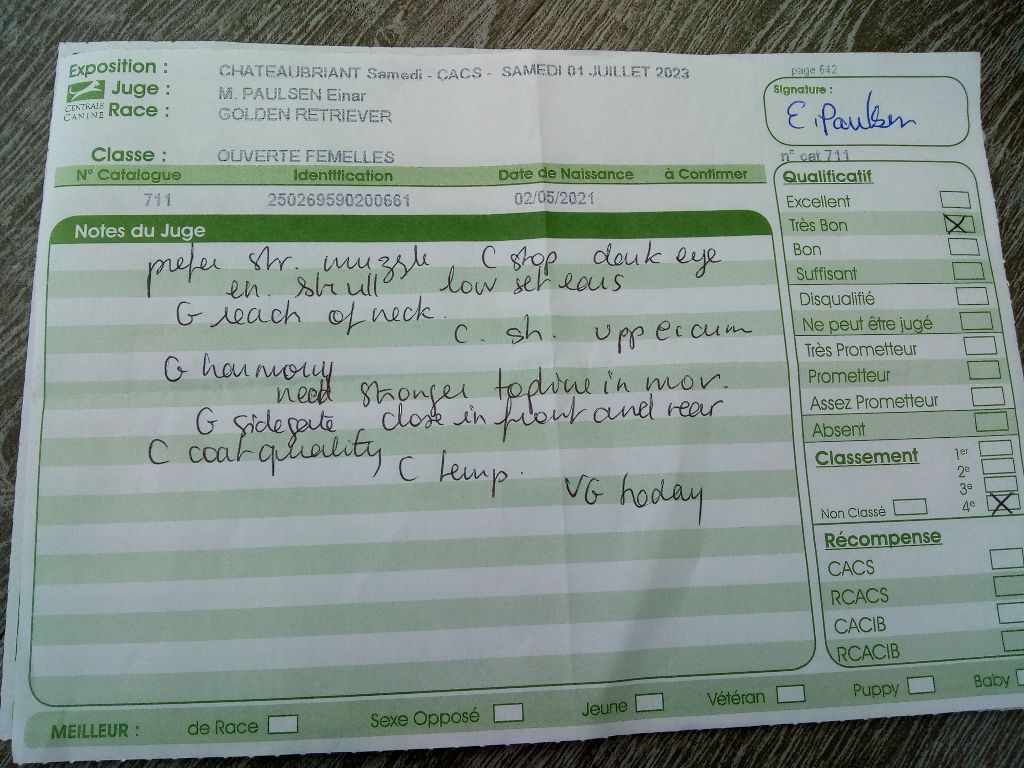 Exposition : CHATEAUBRIANT Samedi - CACS - SAMEDI 01 JUILLET 2023
page 642
Juge : M. PAULSEN Einar
CENTRALE CANINE
Race : GOLDEN RETRIEVER
Signature :
E. Paulsen
Classe : OUVERTE FEMELLES
n° cat 711
N° Catalogue Identification Date de Naissance à Confirmer
711 250269590200661 02/05/2021
Notes du Juge
prefer str. muzzle C stop dark eye
en. skull low set ears
G reach of neck.
C. sh. upper arm
G harmony
need stronger topline in mov.
G sidegate close in front and rear
C coat quality
C temp.
VG today
Qualificatif
Excellent
Très Bon X
Bon
Suffisant
Disqualifié
Ne peut être jugé
Très Prometteur
Prometteur
Assez Prometteur
Absent
Classement
1er
2e
3e
Non Classé 4e X
Récompense
CACS
RCACS
CACIB
RCACIB
MEILLEUR : de Race Sexe Opposé Jeune Vétéran Puppy Baby